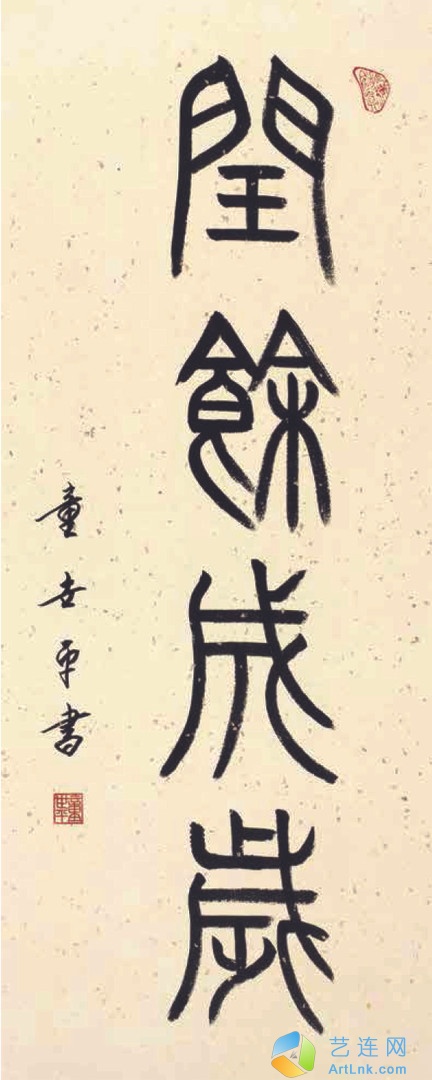 閏餘成歲
童世平書
艺连网
ArtLnk.com